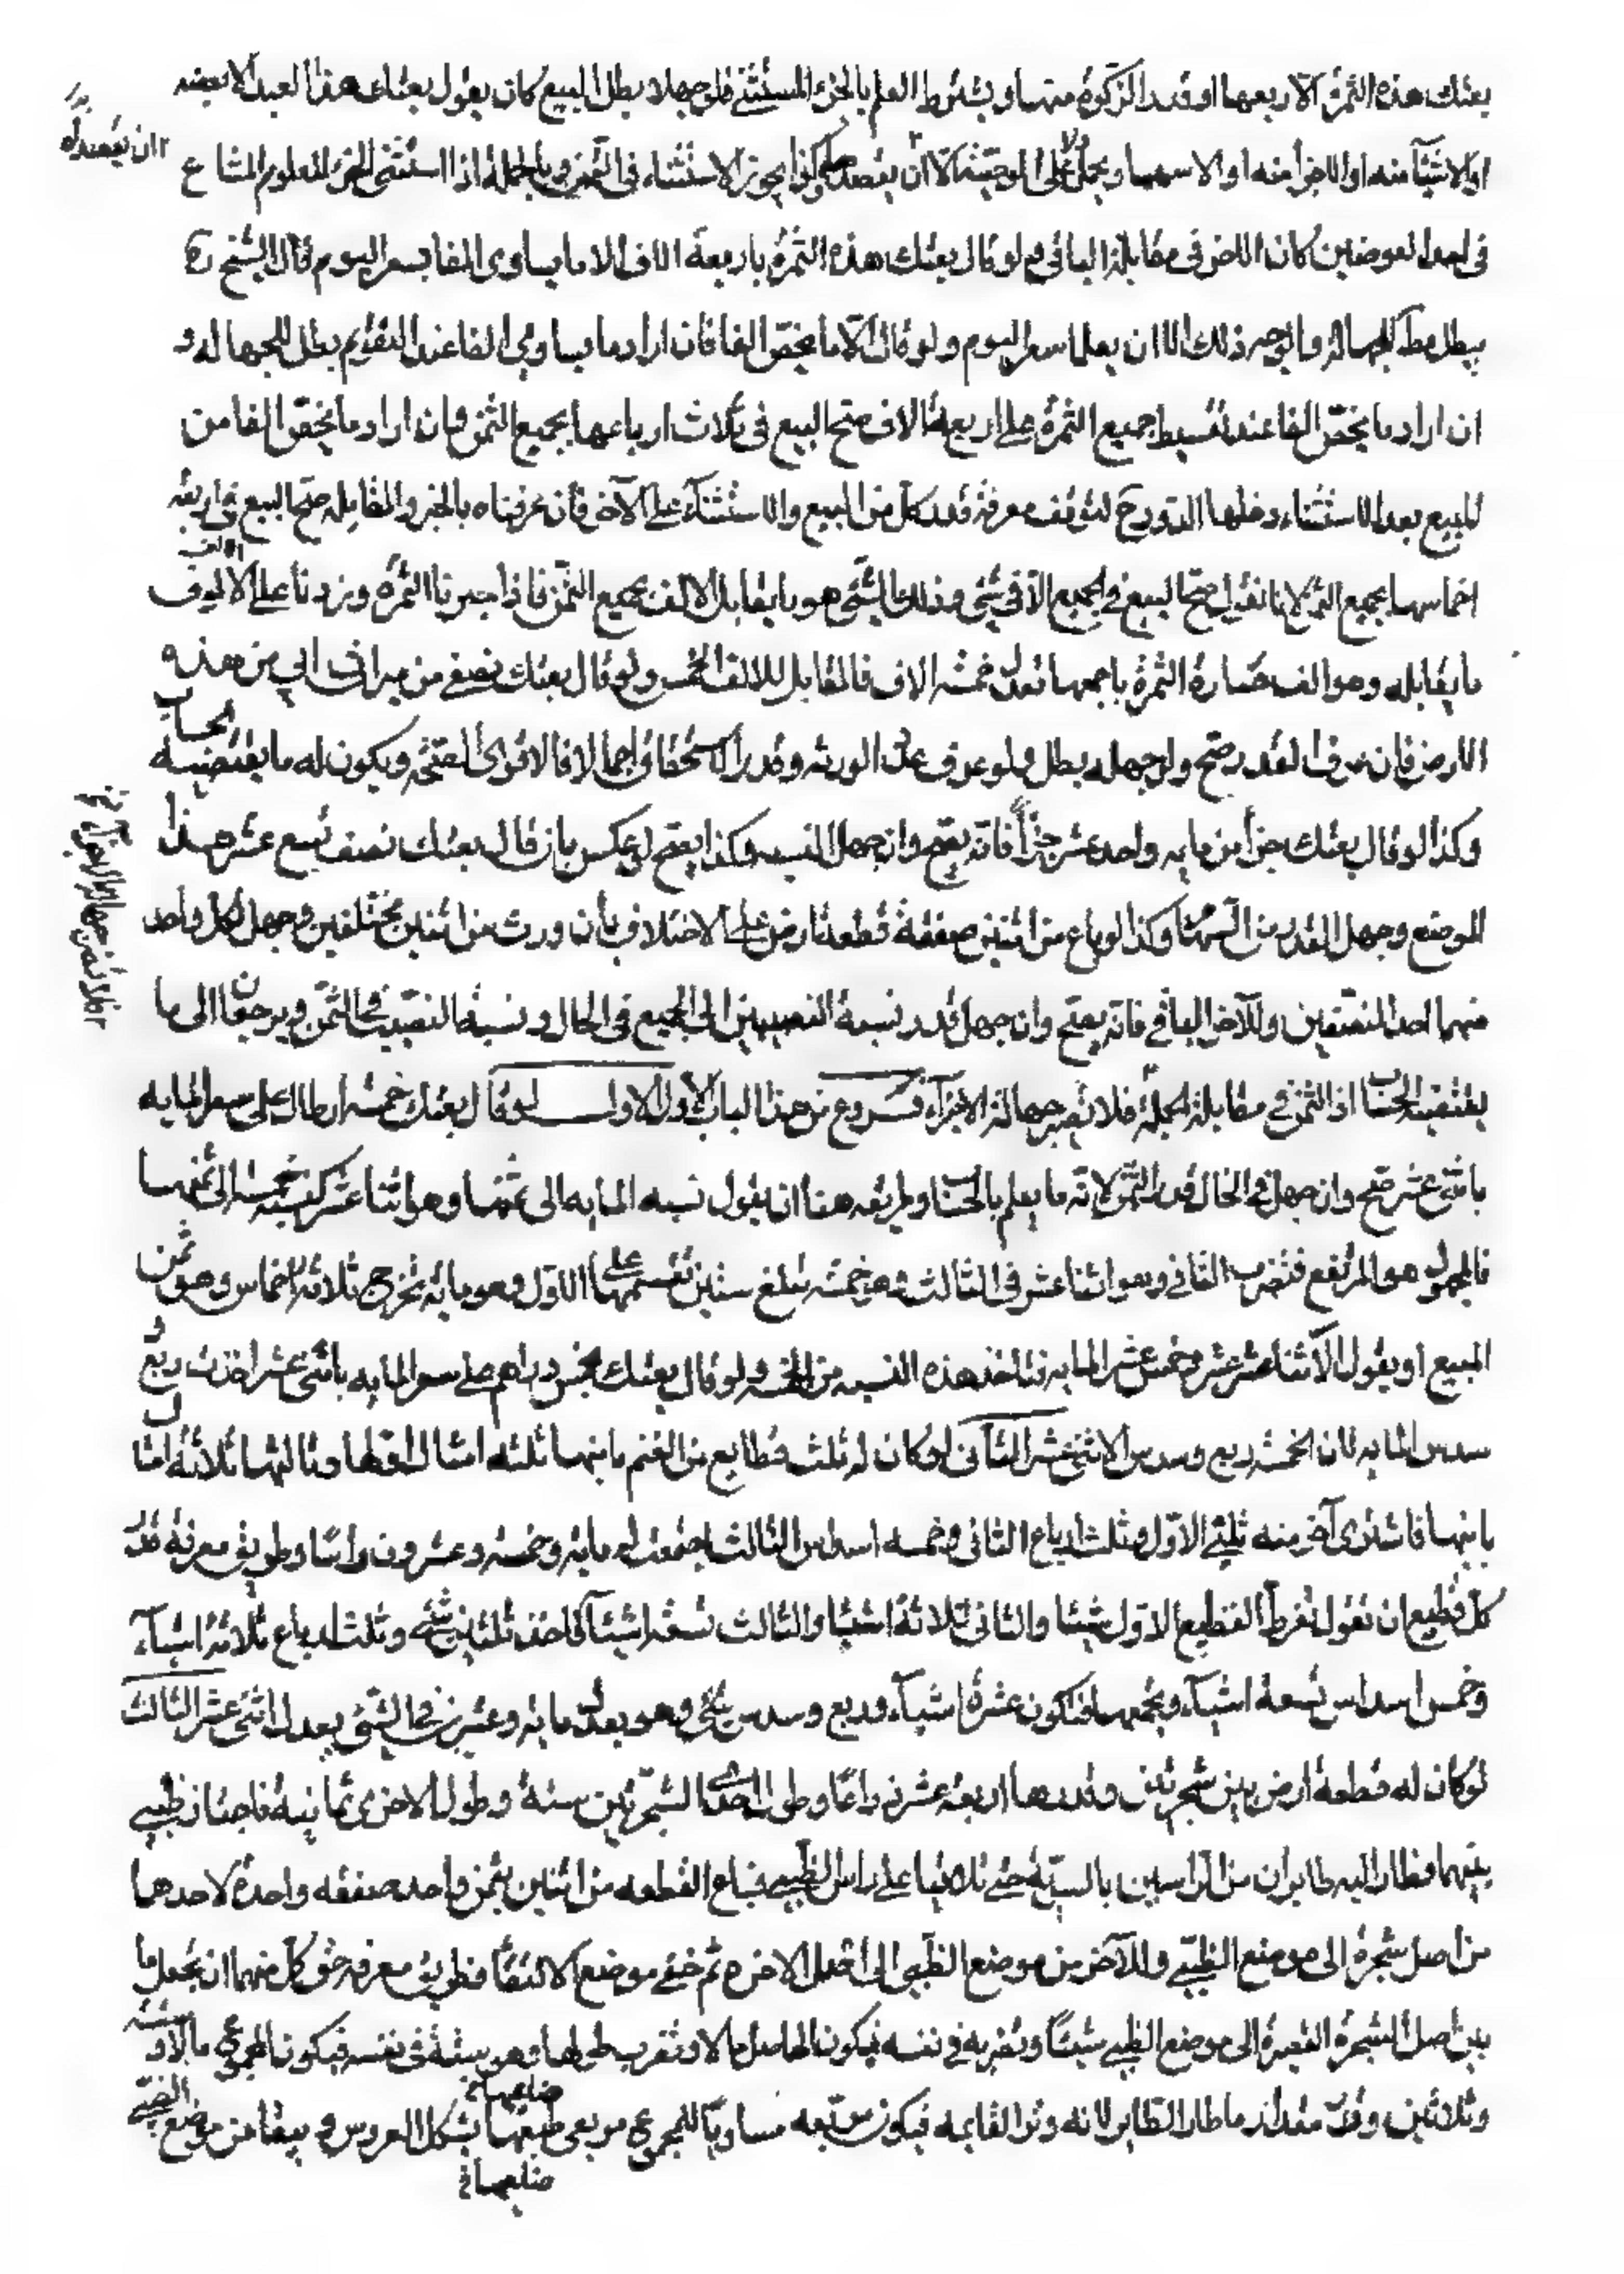 بعتك هذه الثمرة الا ربعها او قدر الزكوة منها ويشترط العلم بالجزء المستثنى فلو جهلا بطل البيع كان يقول بعتك هذا العبد الا بعضه
او الا شيئا منه او الا جزأ منه او الا سهما ويحمل على الوصية الا ان يقصد وكذا يجوز الاستثناء في الثمن وبالجملة اذا استثنى الجزء المعلوم المشاع
في احد العوضين كان الاخر في مقابلة الباقي ولو قال بعتك هذه الثمرة باربعة الاف الا ما يساوي الفا بسعر اليوم قال الشيخ ره
يبطل للجهالة والوجه ذلك الا ان يعلما سعر اليوم ولو قال الا ما يخص الفا فان اراد ما يساوي الفا عند التقويم بطل للجهالة و
ان اراد ما يخص الفا عند تقسيط جميع الثمرة على اربعة الاف صح البيع في ثلاث ارباعها بجميع الثمن وان اراد ما يخص الفا من
المبيع بعد الاستثناء دخلها الدور ح لتوقف معرفة قدر كل من المبيع والاستثناء على الآخر فان عرفناه بالجبر والمقابلة صح البيع في اربعة
اخماسها بجميع الثمن لانا نقول صح البيع في الجميع الا في شئ وذلك الشئ هو ما يقابل الالف بجميع الثمن فاذا جبرنا الثمرة وزدنا على الالوف
ما يقابله وهو الف صارة الثمرة باجمعها تعدل خمسة الاف فالمقابل للالف الخمس ولو قال بعتك نصيبي من ميراث ابي من هذه
الارض فان عرف القدر صح ولو جهله بطل ولو عرف عدد الورثة وقدر الاستحقاق اجمالا فالاقوى الصحة ويكون له ما يقتضيه الحساب
وكذا لو قال بعتك جزأ من مايه واحد عشر جزأ فانه يصح وان جهل النسبة وكذا يصح لو عكس بان قال بعتك نصف تسع عشر هذا
الموضع وجهل القدر من السهام وكذا لو باع من اثنين صفقة قطعة ارض على الاختلاف بان ورث من اثنين مختلفين وجعل لكل واحد
منهما احد النصيبين وللآخر الباقي فانه يصح وان جهل قدر نسبة النصيبين الى الجميع في الحال ونسبة النصيب في الثمن ويرجعان الى ما
يقتضيه الحساب اذ الثمن في مقابلة الجملة فلا تضر جهالة الاجزآء فروع من هذا الباب الاول الاول لو قال بعتك خمسة ارطال على سعر المايه
باثنى عشر صح وان جهل في الحال قدر الثمن لانه ما يعلم بالحساب وطريقه هنا ان يقول نسبه المايه الى ثمنها وهو اثنا عشر كنسبة خمسة الى ثمنها
فالمجهول هو المرتفع فنضرب الثاني وهو اثنا عشر في الثالث وهو خمسة تبلغ ستين نقسمها على الاول وهو مايه تخرج ثلاثة اخماس وهو ثمن
المبيع او يقول الاثنا عشر عشر وخمس عشر المايه فتاخذ هذه النسبه من الخمسه ولو قال بعتك بخمس دراهم على سعر المايه باثنى عشر اخذت ربع و
سدس المايه لان الخمسة ربع وسدس الاثنى عشر الثاني لو كان له ثلث قطايع من الغنم ثانيها ثلثه امثال اولها وثالثها ثلاثة امثال
ثانيها فاشترى آخر منه ثلثي الاول وثلث ارباع الثاني وخمسه اسداس الثالث اجتمعت له مايه وخمسه وعشرون راسا وطريق معرفة قدر
كل قطيع ان تقول نفرض القطيع الاول شيئا والثاني ثلاثة اشياء والثالث تسعة اشيآء فاخذ ثلثين شئ وثلث ارباع ثلاثة اشيآء
وخمس اسداس تسعة اشيآء ومجموعها فتكون عشرة اشيآء وربع وسدس شئ وهو يعدل مايه وعشرين وخمسا فالشئ يعدل اثنى عشر الثالث
لو كان له قطعة ارض بين شجرتين وقدرها اربعة عشر ذراعا وطول احدى الشجرتين ستة وطول الاخرى ثمانية فاجتاز ظبي
بينهما فطار اليه طايران من الراسين بالسوية حتى تلاقيا على راس الظبي فباع القطعه من اثنين بثمن واحد صفقه واحدة لاحدهما
من اصل شجرة الى موضع الظبي وللآخر من موضع الظبي الى اصل الاخره ثم خفي موضع الالتقاء فطريق معرفة حق كل منهما ان نجعل ما
بين اصل الشجرة القصيرة الى موضع الظبي شيئا ونضربه في نفسه فيكون الحاصل مالا ونضرب طولها وهو ستة في نفسه فيكون المجموع مالا وستة
وثلاثين وقد مقدار ما طار الطاير لانه وتر القايمه فيكون مربعه مساويا لمجموع مربعي ضلعيها بشكل العروس ويبقا من موضع الظبي
ضلعيها